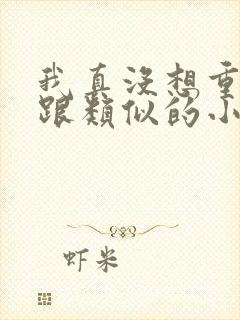 我真没想重
跟类似的小
虾米